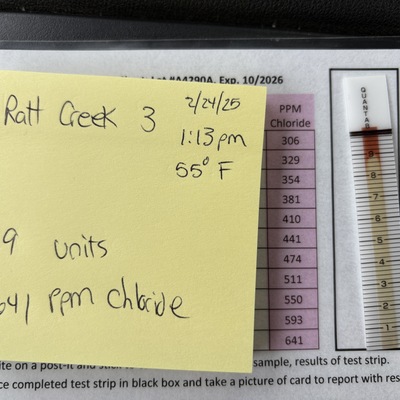 #A4290A, Exp. 10/2026
Ratt Creek 3
2/24/25
1:13pm
55° F
9 units
641 ppm chloride
PPM
Chloride
306
329
354
381
410
441
474
511
550
593
641
QUANTAB
9
8
7
6
5
4
3
2
1
ite on a post-it and stick to
sample, results of test strip.
ce completed test strip in black box and take a picture of card to report with res